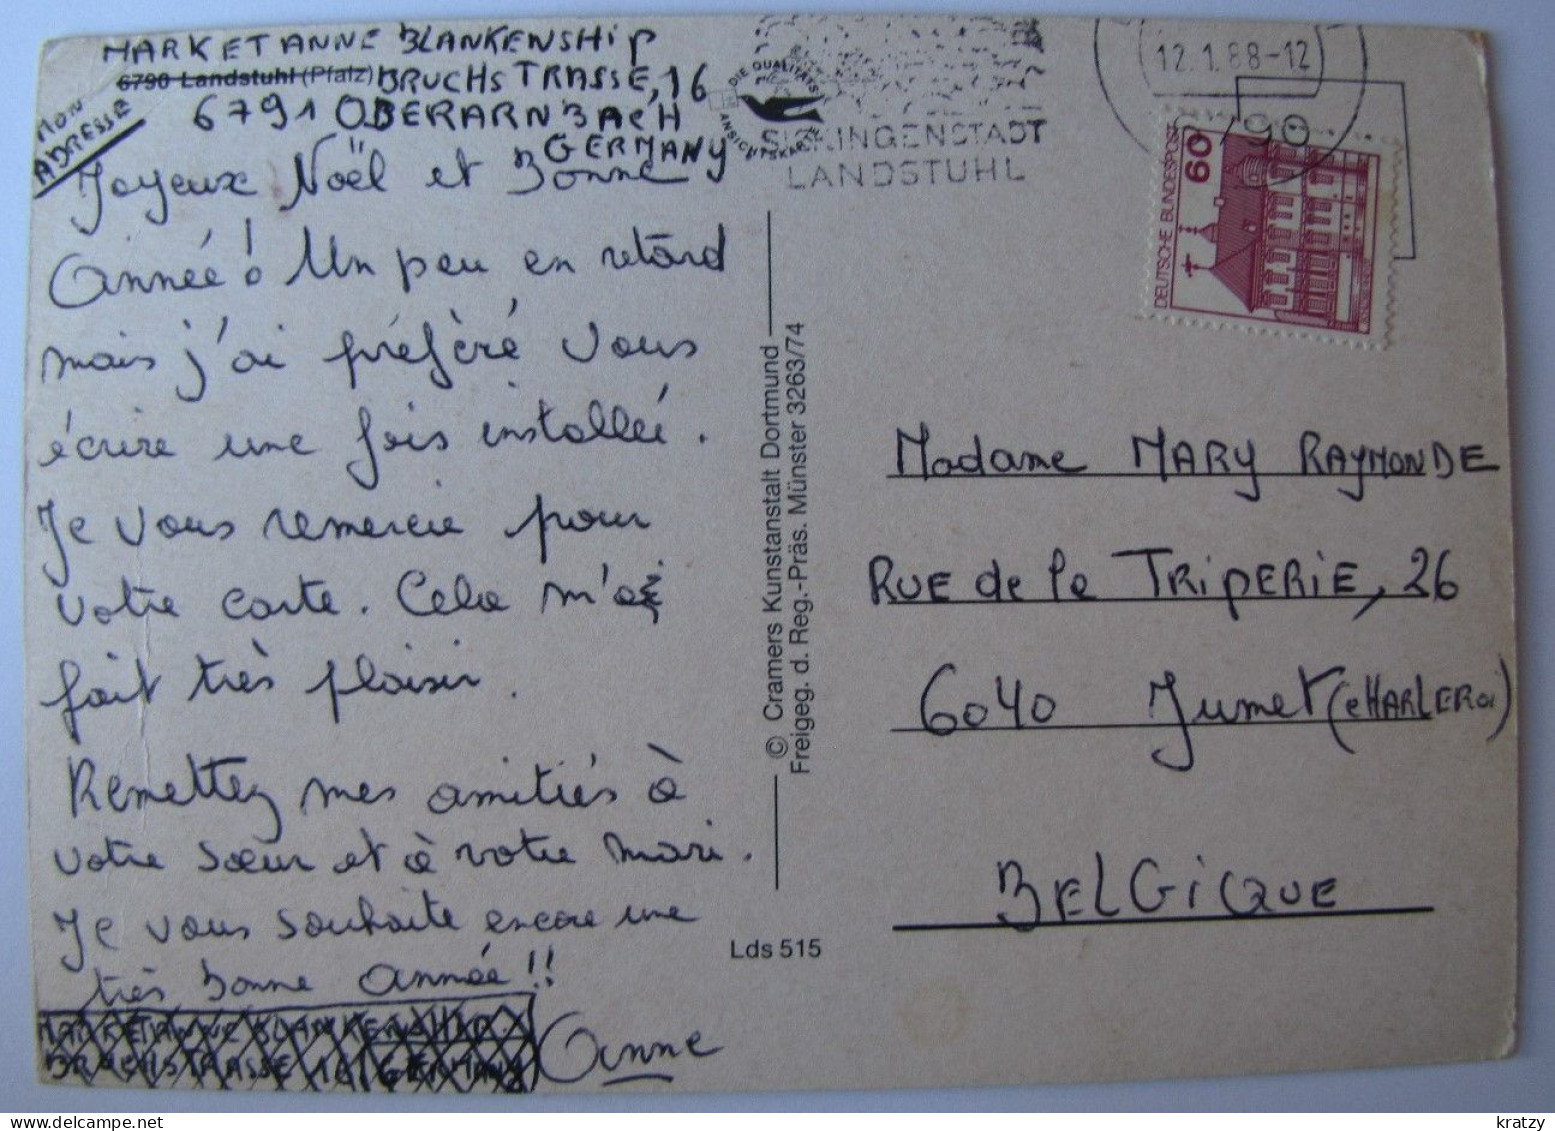 MARK ET ANNE BLANKENSHIP
6790 Landstuhl (Pfalz) BRUCHSTRASSE, 16
6791 OBERARNBACH
GERMANY
MON
ADRESSE
Joyeux Noël et Bonne
Année! Un peu en retard
mais j'ai préféré vous
écrire une fois installée.
Je vous remercie pour
votre carte. Cela m'a
fait très plaisir.
Remettez mes amitiés à
votre sœur et à votre mari.
Je vous souhaite encore une
très bonne année!!
MARK ET ANNE BLANKENSHIP
BRUCHSTRASSE 16, GERMANY
Anne
DIE QUALITÄTS
ANSICHTSKARTE
© Cramers Kunstanstalt Dortmund
Freigeg. d. Reg.-Präs. Münster 3263/74
Lds 515
SICKINGENSTADT
LANDSTUHL
12.1.88-12
6790
DEUTSCHE BUNDESPOST
60
Madame MARY RAYMONDE
RUE de la TRIPERIE, 26
6040 Jumet (CHARLEROI)
BELGIQUE
kratzy